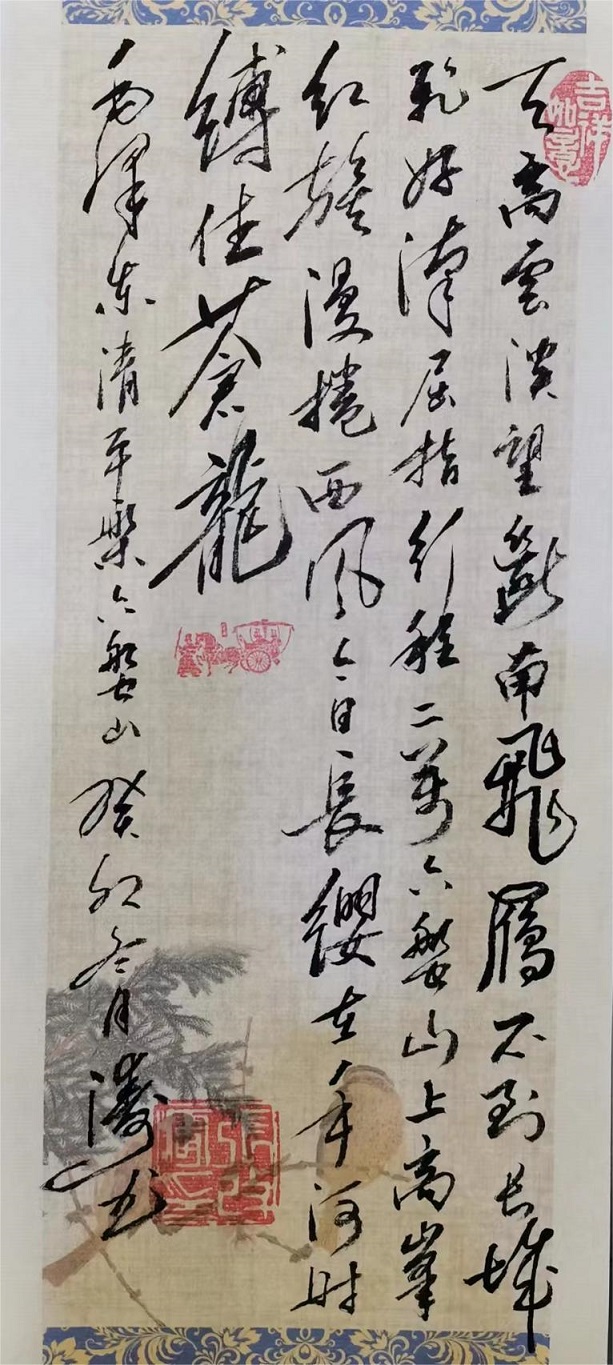 吉祥如意
天高雲淡望斷南飛鴈不到长城
非好漢屈指行程二萬六盤山上高峯
红旗漫捲西風今日長纓在手何时
縛住蒼龍
毛澤东清平樂六盤山癸卯冬月濤书